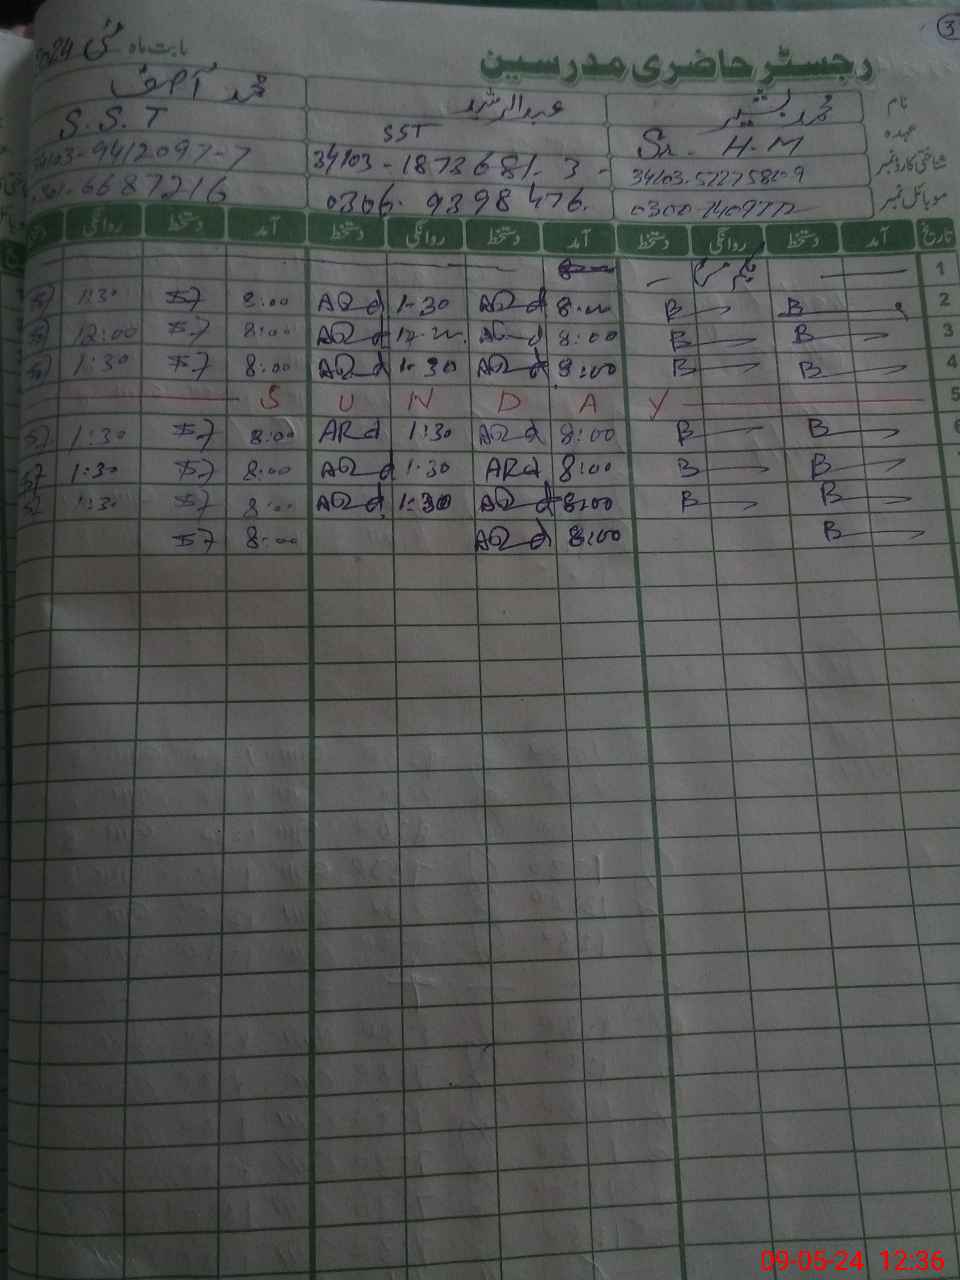 3
رجسٹر حاضری مدرسین
بابت ماہ مئی 2024
نام محمد بشیر عبدالرشید محمد آصف
عہدہ Sr. H.M SST S.S.T
شناختی کارڈ نمبر 34103-1873681-3 34103-9412097-7
موبائل نمبر 0306-9398476 6687216
تاریخ آمد دستخط روانگی دستخط آمد دستخط روانگی دستخط آمد دستخط روانگی
1
2 B B 8:00 ARd 1-30 ARd 8:00 1:30
3 B B 8:00 ARd ARd 8:00 12:00
4 B B 8:00 ARd 1-30 ARd 8:00 1:30
5 S U N D A Y
6 B B 8:00 ARd 1:30 ARd 8:00 1:30
B B 8:00 ARd 1:30 ARd 8:00 1:30
B B 8:00 ARd 1:30 ARd 8:00 1:30
B 8:00 ARd 8:00
09-05-24 12:36